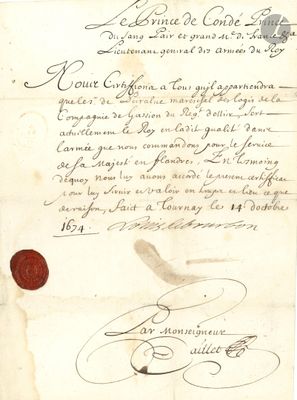 Le Prince de Condé Prince
du Sang Pair et grand Me de france &a
Lieutenant general des Armées du Roy
Nous Certifions a tous qu'l appartiendra
que le sr. de mareschal des logis de la
Compagnie de Gassion du Regt sert
actuellement le Roy en ladit qualité dans
larmée que nous commandons pour le service
de sa Majesté en flandres, En tesmoing
dequoy nous luy avons accordé le present certifficat
pour luy servir et valoir en temps et lieu ce que
de raison, fait a Tournay le 14 doctobre
1674. Louis de bourbon
Par Monseigneur
Caillet